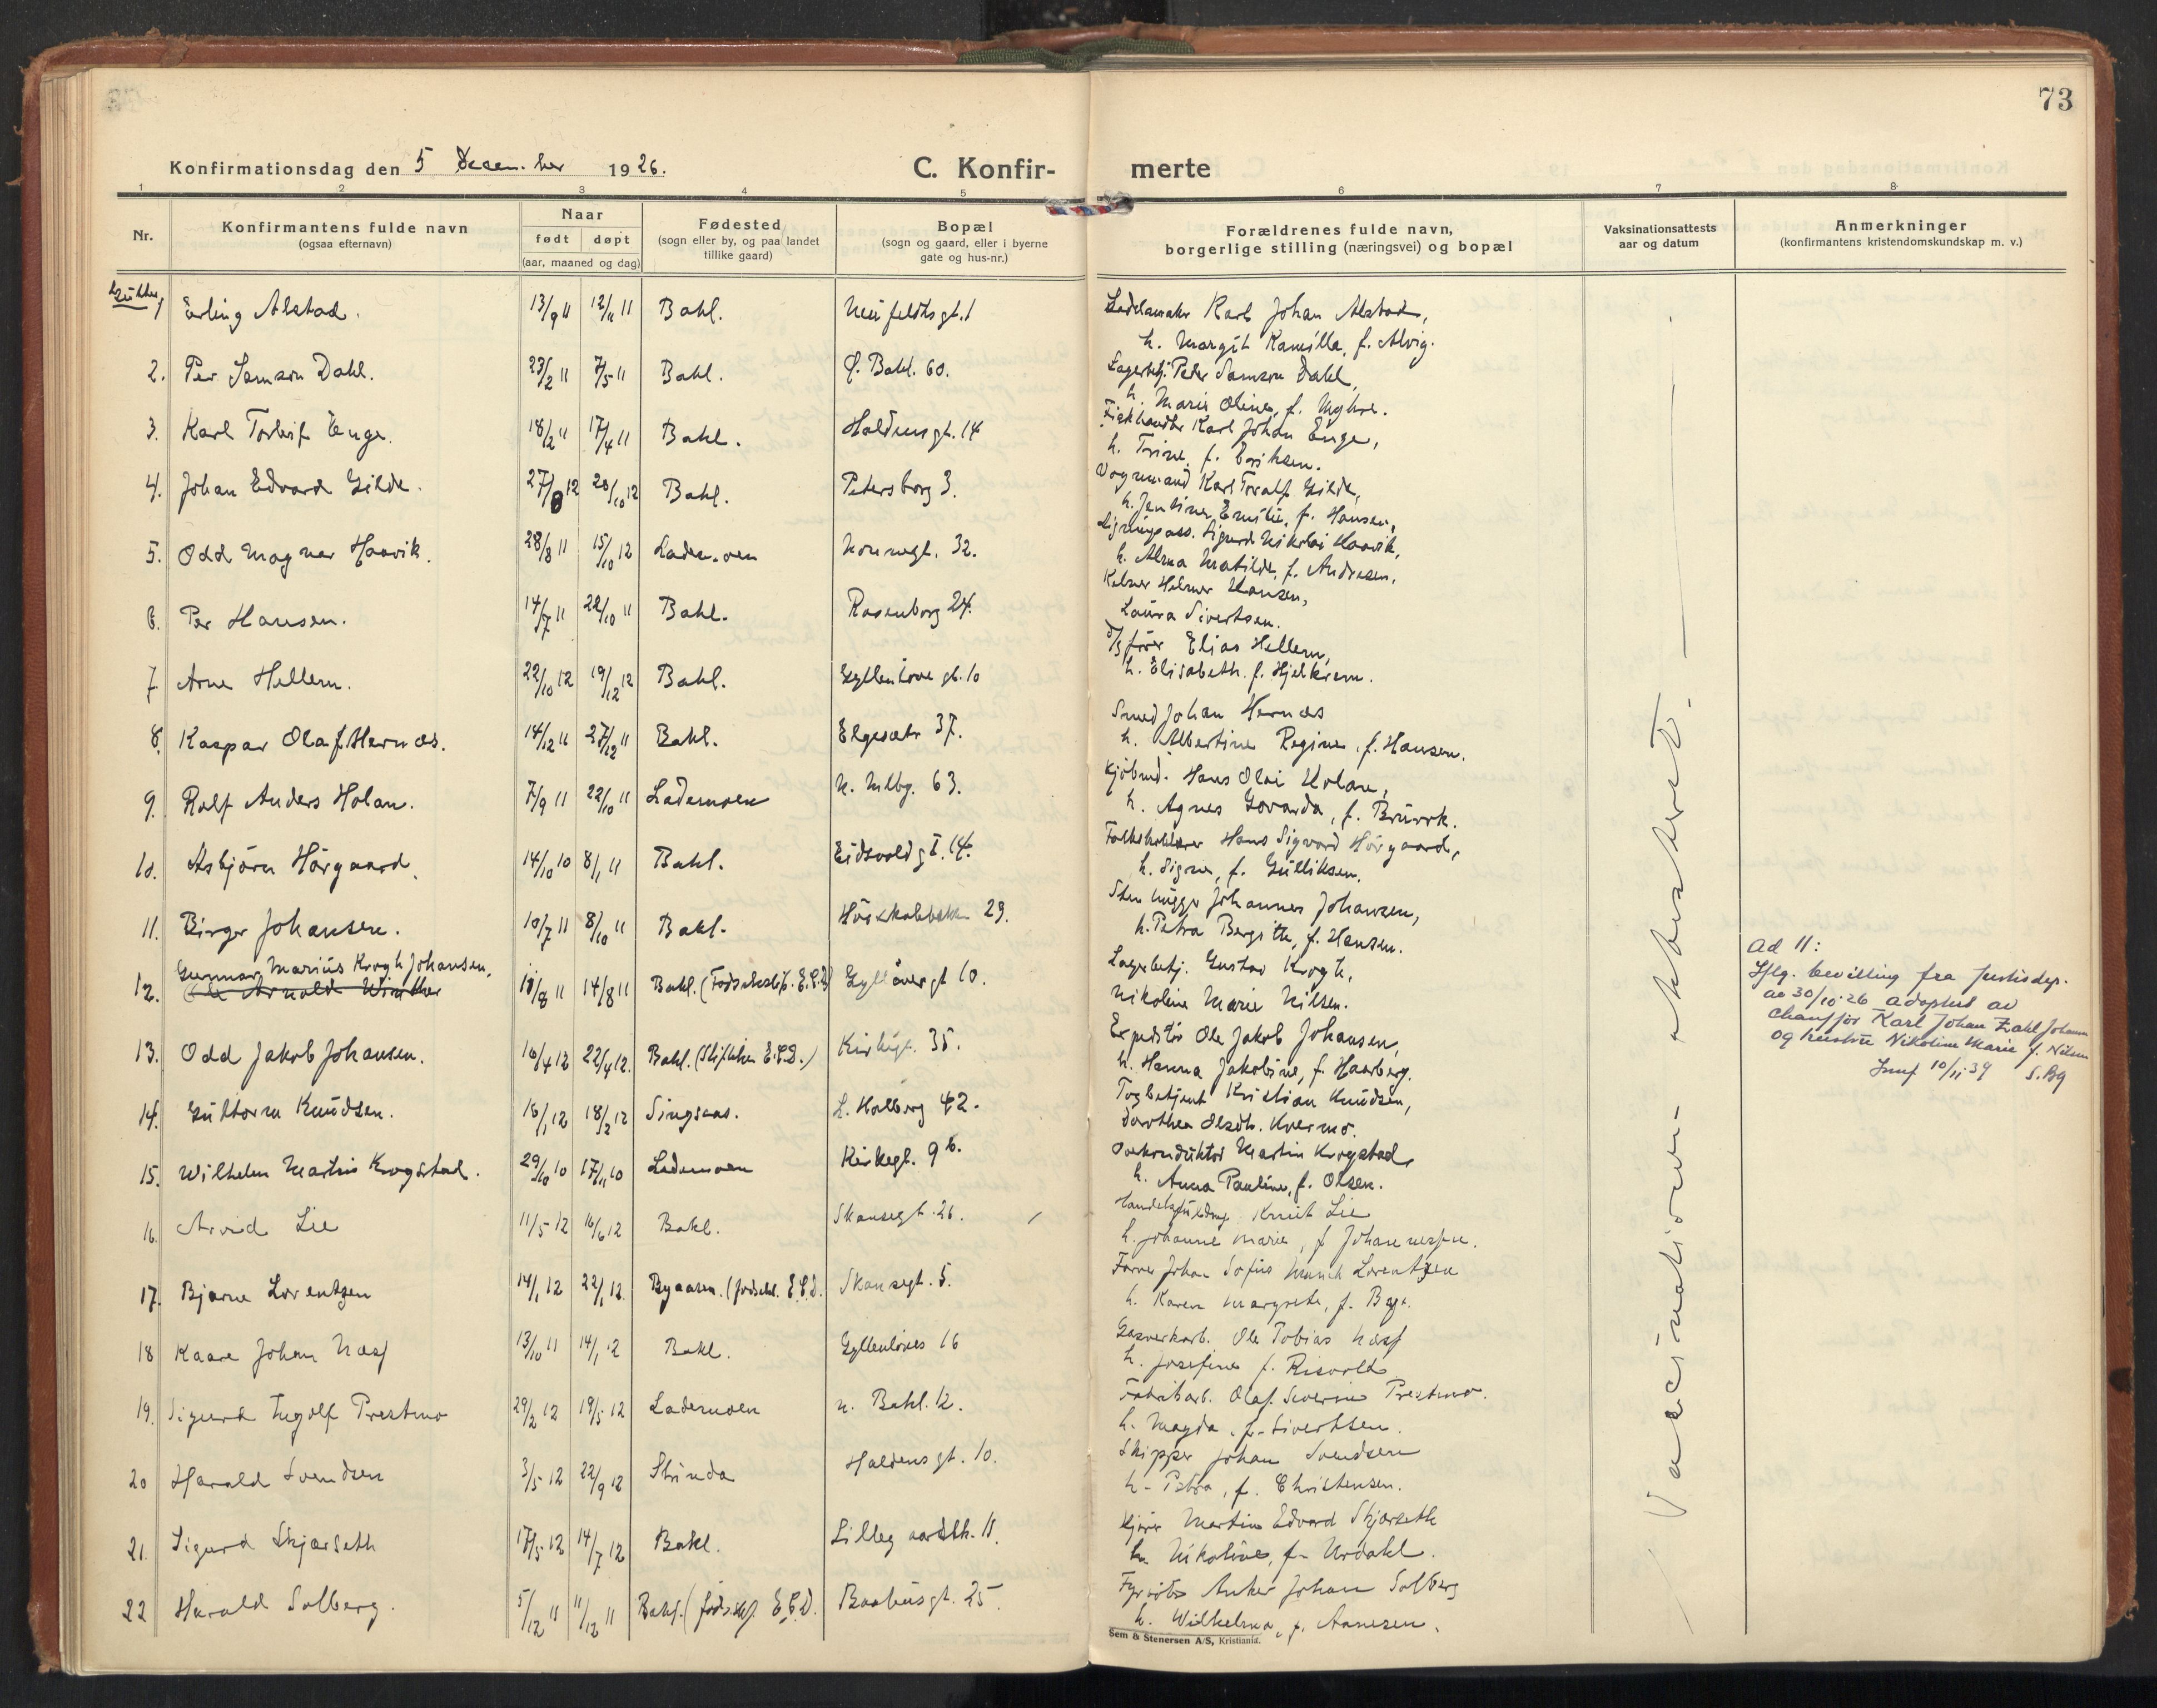 73
Konfirmationsdag den 5 desember 1926.
C. Konfir-
merte
1 2 3 4 5 6 7 8
Nr.
Konfirmantens fulde navn
(ogsaa efternavn)
Naar
født døpt
(aar, maaned og dag)
Fødested
(sogn eller by, og paa landet
tillike gaard)
Bopæl
(sogn og gaard, eller i byerne
gate og hus-nr.)
Forældrenes fulde navn,
borgerlige stilling (næringsvei) og bopæl
Vaksinationsattests
aar og datum
Anmerkninger
(konfirmantens kristendomskundskap m. v.)
1 Erling Alstad. 13/9 11 12/11 11 Bakl. gt. 1
Karl Johan Alstad,
h. Margit Kamilla, f. Alvig.
2. Per Samson Dahl. 23/2 11 7/5 11 Bakl. Ø. Bakl. 60.
Lagerbetj. Peder Samson Dahl,
h. Marie Oline, f. Myhre.
3. Karl Torleif Enge. 18/2 11 17/4 11 Bakl. Haldensgt. 14
Fiskhandler Karl Johan Enge,
h. Trine, f. Eriksen.
4. Johan Edvard Gilde. 27/8 12 20/10 12 Bakl. Petersborg 3.
Vognmand Karl Toralf Gilde,
h. Jensine Emilie, f. Hansen,
5. Odd Magnar Haavik. 28/8 11 15/10 12 Lademoen Nonnegt. 32.
Ligningsass. Sigurd Nikolai Haavik,
h. Alma Matilde, f. Andresen.
6. Per Hansen. 14/7 11 22/10 11 Bakl. Rosenborg 24.
Kelner Helmer Hansen,
Laura Sivertsen.
7 Arne Hellem. 22/10 12 19/12 12 Bakl. Gyldenløve gt. 10
d/s fører Elias Hellem,
h. Elisabeth. f. Hjelkrem.
8. Kaspar Olaf Hernæs. 14/12 11 27/12 11 Bakl. Elgesæter 37.
Smed Johan Hernæs
h. Albertine Regine, f. Hansen.
9. Rolf Anders Holan. 7/9 11 22/10 11 Lademoen N. Mlbg. 63.
Kjöbmd. Hans Olai Holan,
h. Agnes Govarda, f.
10. Asbjørn Hørgaard. 14/10 10 8/1 11 Bakl. Eidsvoldgt. 14.
Folkskolelærer Hans Sigvard Hörgaard,
h. Signe, f. Gulliksen.
11. Birger Johansen. 10/7 11 8/10 11 Bakl. Höiskolebakken 29.
Stenhugger Johannes Johansen,
h. Petra Bergitte, f. Hansen.
Gunnar Marius Krogh Johansen,
12. Ole Arnold Winther 11/8 11 14/8 11 Bakl. (Fødselsstift. E.C.D.) Gyldløvesgt 10.
Lagerbetj. Gustav Krogh,
Nikoline Marie Nilsen.
13. Odd Jakob Johansen. 16/4 12 22/4 12. Bakl. (Stiftelsen E.C.D.) Kirkegt. 35.
Expeditör Ole Jakob Johansen,
h. Hanna Jakobine, f. Haarberg.
14. Guttorm Knudsen. 16/1 12 18/2 12 Singsaas. L. Halberg 42.
Togbetjent Kristian Knudsen,
Dorthea Olsdtr. Kvermo.
15. Wilhelm Martin Krogstad. 29/10 10 17/11 10 Lademoen Kirkegt. 9 b.
Overkonduktör Martin Krogstad,
h. Anna Pauline, f. Olsen.
16. Arvid Lie 11/5 12 16/6 12 Bakl. Skansegt. 26.
Handelsfuldmæg. Knut Lie
h. Johanne Marie, f. Johannessen.
17. Bjarne Lorentzen 14/1 12 22/1 12. Byaasen. (fødselsst. E.C.D. Skansegt. 5.
Farver Johan Sofus Munch Lorentzen
h. Karen Margrete, f.
18 Kaare Johan Næss 13/10 11 14/1 12 Bakl. Gyllenløves 16
Gasverkarb. Ole Tobias Næss
h. Josefine f. Risvold
19. Sigurd Ingolf Prestmo 29/2 12 19/5 12 Lademoen N. Bakl. 12.
Fabrikarb. Olaf Severin Prestmo.
h. Magda, f. Sivertsen.
20 Harald Svendsen 3/5 12 22/9 12 Strinda Haldens gt. 10.
Skipper Johan Svendsen
h. Petra, f. Christensen.
21. Sigurd Skjærseth 17/5 12 14/7 12 Bakl. Lillegaardsbk. 11.
Kjører Martin Edvard Skjærseth
h. Nikoline, f. Urdahl.
22 Harald Solberg. 5/12 11 11/12 11 Bakl. (föds.stif. E.C.D. Baahusgt. 25.
Fyrböter Anker Johan Solberg
h. Wilhelma, f. Aanesen.
Vaccinationen attestert.
ad 11:
Iflg. bevilling fra justisdep.
av 30/10-26 adoptert av
chauffør Karl Johan Johansen
og hustru Nikoline Marie f. Nilsen
10/11 39 S.Bg
Sem & Stenersen A/S, Kristiania.